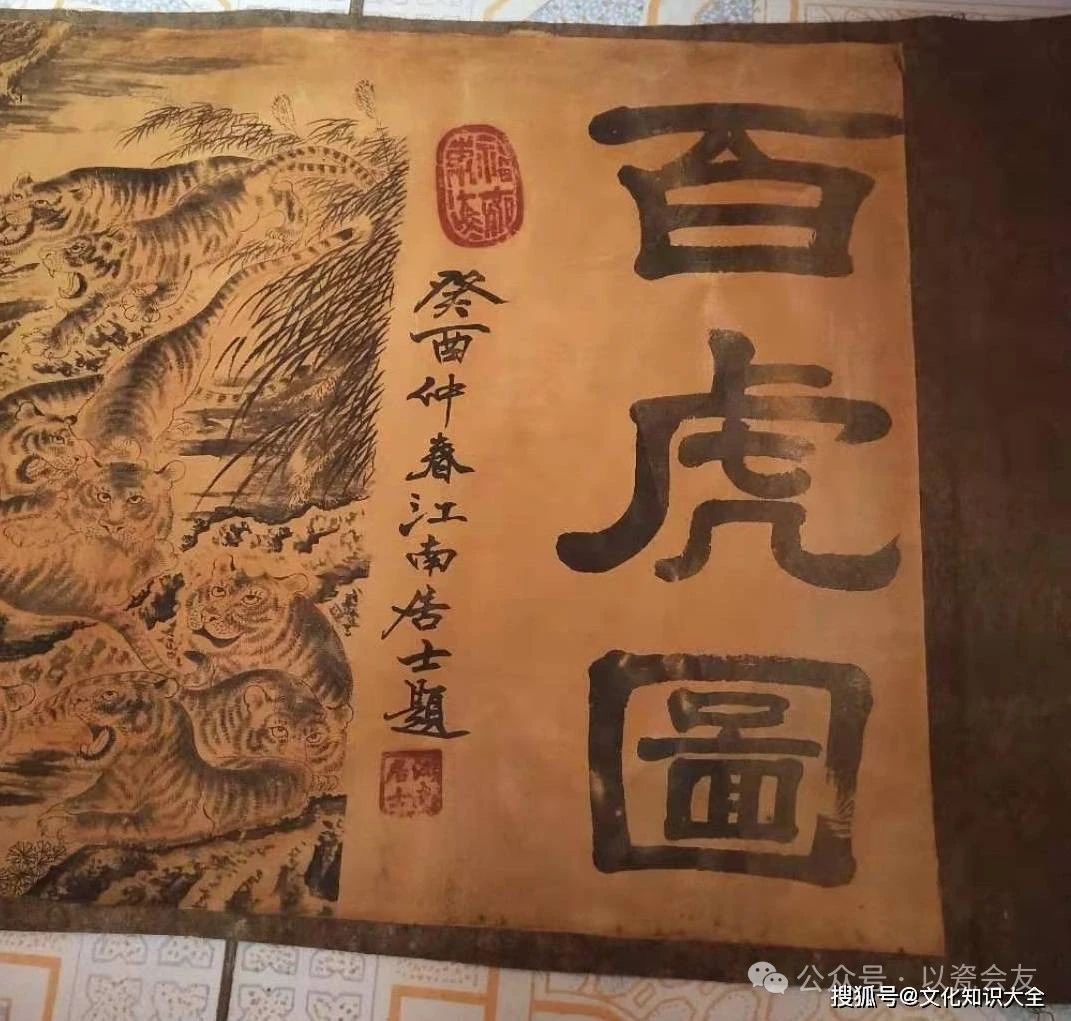 百虎圖
癸酉仲春江南居士題
居士
公众号·以瓷会友
搜狐号@文化知识大全